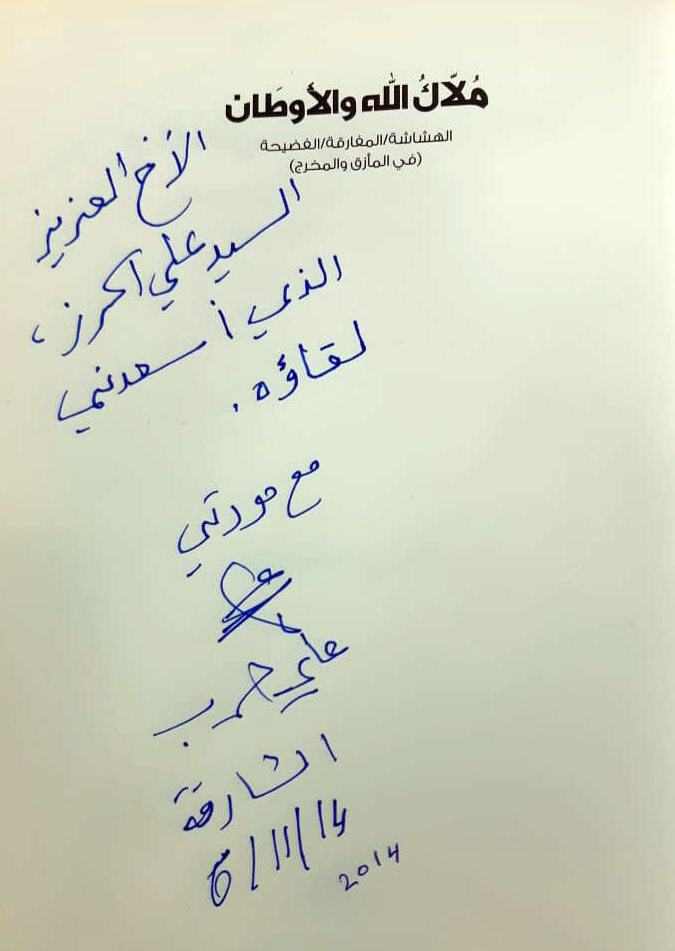 مُلّاكُ الله والأوطَان
الهشاشة/المفارقة/الفضيحة
(في المأزق والمخرج)
الأخ العزيز
السيد علي الحرز،
الذي أسعدني
لقاؤه.
مع مودتي
علي حرب
الشارقة
6/11/14
2014